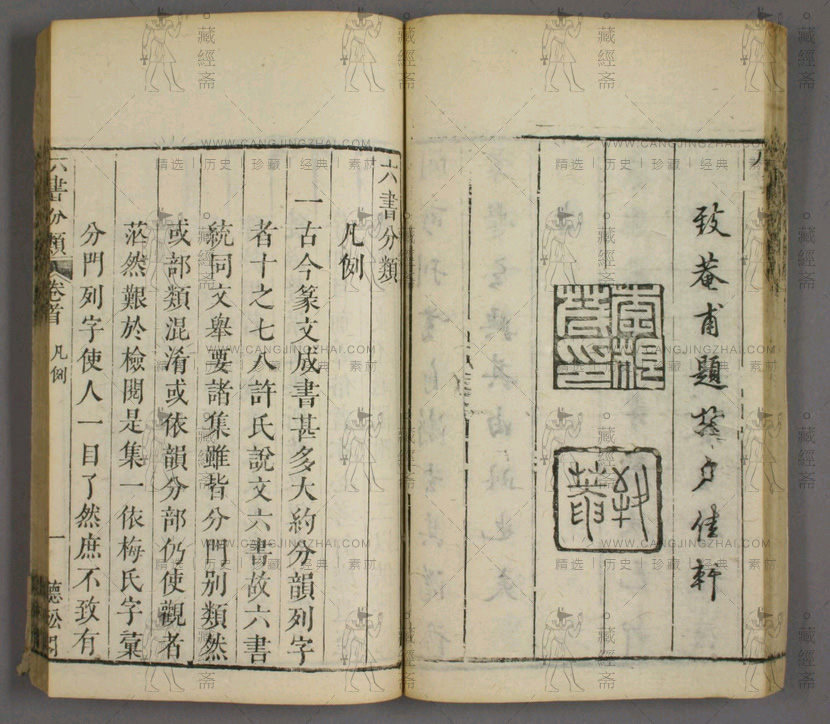 菴甫題於夕佳軒
六書分類
凡例
一古今篆文成書甚多大約分韻列字
者十之七八許氏說文六書故六書
統同文舉要諸集雖皆分門別類然
或部類混淆或依韻分部仍使觀者
茫然艱於檢閱是集一依梅氏字彙
分門列字使人一目了然庶不致有
六書分類 卷首 凡例 一 松閣
藏經斋
WWW.CANGJINGZHAI.COM
精选｜历史｜珍藏｜经典｜素材